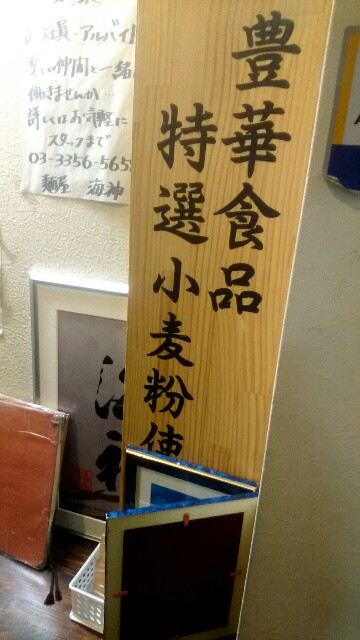 豊華食品
特選小麦粉使
社員・アルバイト
仲間と一緒
働きませんか…
詳しくはお気軽に
スタッフまで
03-3356-565
麺屋 海神